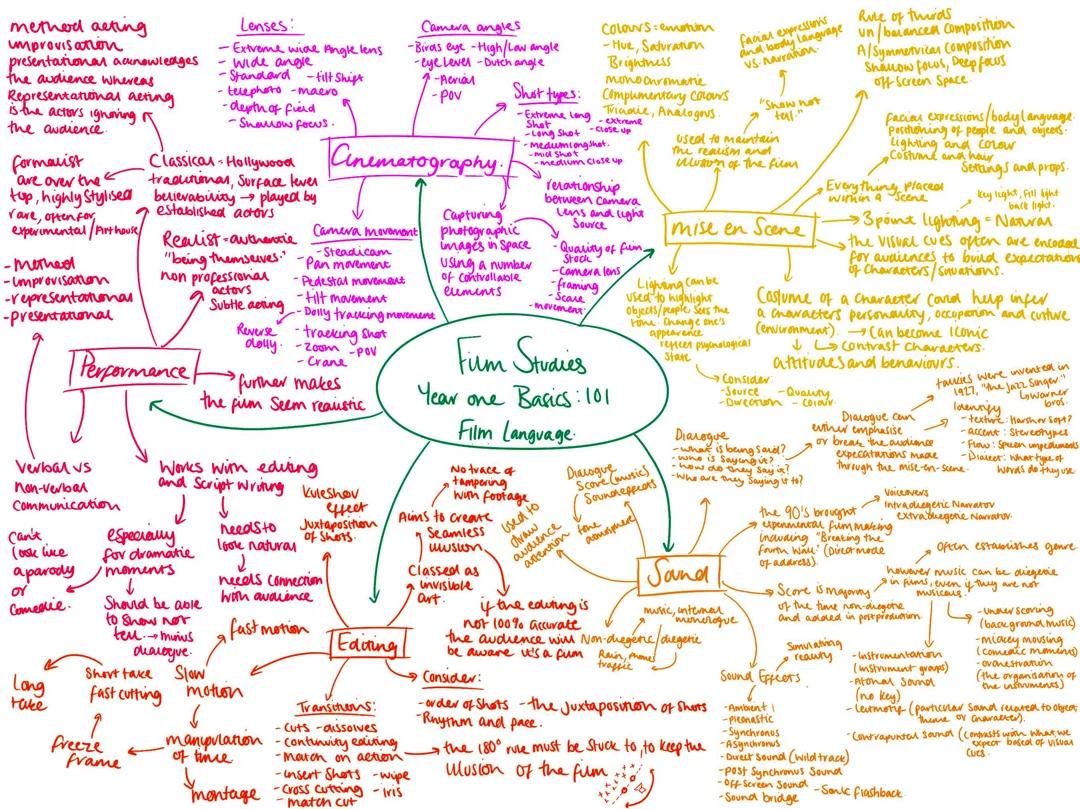 Film Studies
Year one Basics: 101
Film Language.
Cinematography.
Lenses:
- Extreme wide Angle lens
- Wide angle
- Standard - tilt shift
- telephoto - macro
- depth of field
- Shallow focus.
Camera angles
- Birds eye - High/Low angle
- eye Level - Dutch angle
- Aerial
- POV
Shot types:
- Extreme long shot
- extreme close up
- Long Shot
- medium long shot.
- mid shot
- medium close up
relationship
between camera
Lens and light
Source
- Quality of film
Stock
- Camera lens
- framing
- Scale
- movement.
Capturing
photographic
images in Space
using a number
of controllable
elements
Camera Movement
- Steadicam
- Pan movement
- Pedestal movement
- tilt movement
- Dolly tracking movement
Reverse
dolly.
- tracking shot
- Zoom - POV
- Crane
mise en Scene
Colours = emotion
- Hue, Saturation
Brightness
monochromatic
Complimentary Colours
Triadic, Analogous.
used to maintain
the realism and
illusion of the film
"Show not
tell."
facial expressions
and body language
vs. narration.
Rule of thirds
un/balanced composition
A/Symmetrical Composition
Shallow focus, Deep focus
off Screen Space.
Everything placed
within a Scene
facial expressions/body language.
positioning of people and objects.
lighting and colour
Costume and hair
Settings and props.
3 point lighting = Natural
Key light, Fill light
back light.
the visual cues often are encoded
for audiences to build expectations
of characters/situations.
Costume of a character could help infer
a characters personality, occupation and culture
(environment). → Can become Iconic
↳ contrast Characters.
attitudes and behaviours.
Lighting can be
used to highlight
objects/people. Sets the
tone. Change one's
appearance
reflect psychological
State
- Consider:
- Source - Quality
- Direction - colour.
Sound
Dialogue
- What is being said?
- Who is Saying it?
- How do they Say it?
- Who are they Saying it to?
Dialogue can
either emphasise
or break the audience
expectations made
through the mise-en-scene.
talkies were invented in
1927, "the Jazz Singer."
↳ Warner
bros.
Identify
- texture: Harsh or Soft?
- accent: Stereotypes
- Flow: Speech impediments
- Dialect: What type of
words do they use
the 90's brought
experimental film making
including "Breaking the
Fourth Wall" (Direct mode
of address).
Voiceovers
Intradiegetic Narrator
extradiegetic Narrator.
Score is majority
of the time non-diegetic
and added in post production.
Often establishes genre
however music can be diegetic
in films, even if they are not
musicals.
- underscoring
(background music)
- mickey mousing
(comedic moments)
- orchestration
(the organisation of
the instruments)
- instrumentation
(instrument groups)
- Atonal Sound
(no key)
- Leitmotif (particular Sound related to object
theme or Character).
- Contrapuntal Sound (Contrasts with what we
expect based of visual
cues.
Simulating
reality
Sound Effects
- Ambient
- Pleonastic
- Synchronus
- Asynchronus
- Direct Sound (Wild track)
- Post Synchronus Sound
- Off Screen Sound - Sonic flashback.
- Sound bridge
music, internal
monologue
Non-diegetic/diegetic
Rain, phones
traffic
Dialogue
Score (music)
Sound effects
tone
atmosphere
used to
draw
audience
attention
Editing
Kuleshov
effect
Juxtaposition
of Shots.
No trace of
tampering
with footage
Aims to create
Seamless
illusion
Classed as
invisible
art.
if the editing is
not 100% accurate
the audience will
be aware it's a film
Consider:
- order of Shots - the Juxtaposition of Shots
- Rhythm and pace.
Transitions:
- Cuts - dissolves
- Continuity editing
- Match on action
- insert Shots - wipe
- Cross cutting - Iris
- match cut
the 180° rule must be Stuck to, to keep the
illusion of the film
fast motion
Slow
motion
manipulation
of time
montage
freeze
frame
Short take
fast cutting
Long
take
Performance
method acting
improvisation
presentational acknowledges
the audience whereas
Representational acting
is the actors ignoring
the audience.
Classical = Hollywood
traditional, Surface level
believability → played by
established actors
formalist
are over the
top, highly Stylised
rare, often for
experimental/Art house
Realist = authentic
"being themselves."
non professional
actors
Subtle acting
- Method
- improvisation
- representational
- presentational
further makes
the film Seem realistic
Verbal vs
non-verbal
Communication
Works with editing
and Script Writing
needs to
look natural
needs connection
with audience
especially
for dramatic
moments
Can't
look like
a parody
or
comedic.
Should be able
to Show not
tell.
dialogue.